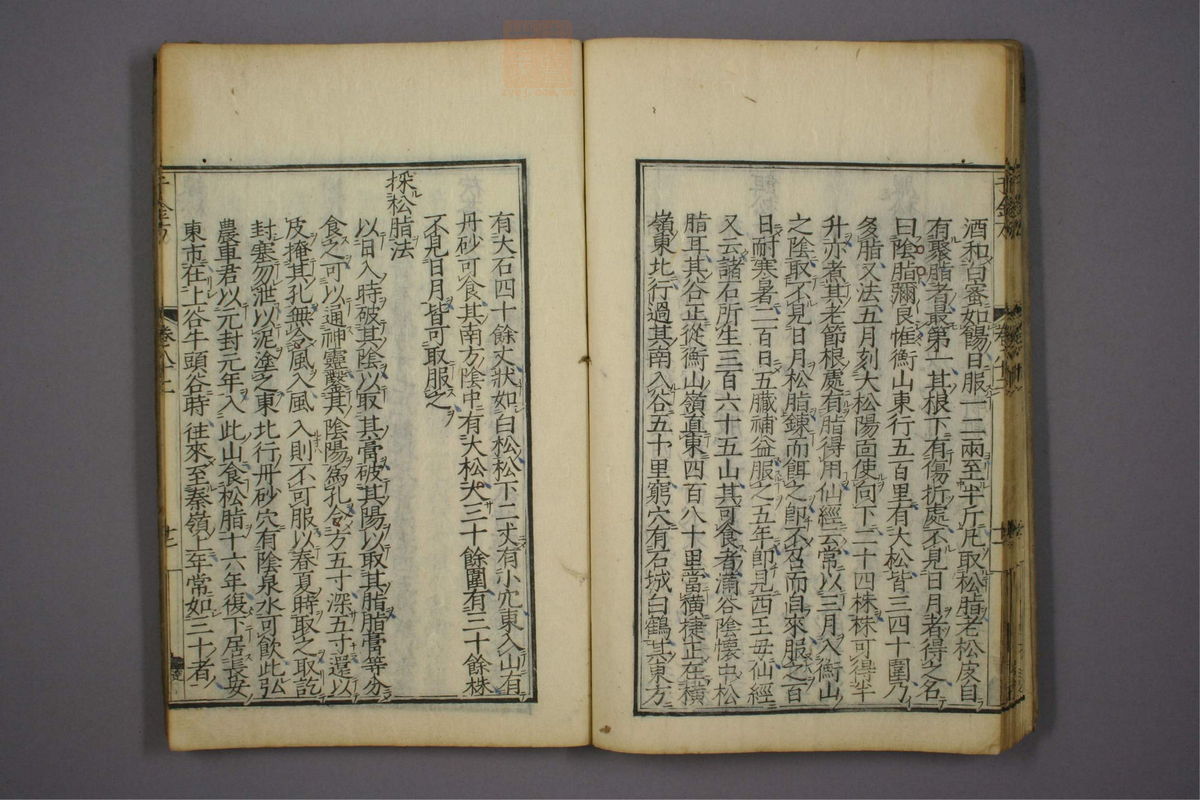 酒和白蜜如餳日服一二兩至半斤凡取松脂老松皮自
有聚脂者最第一其根下有傷折處不見日月者得之名
曰陰脂彌良惟衡山東行五百里有大松皆三四十圍乃
多脂又法五月刻大松陽面使向下二十四株株可得半
升亦煮其老節根處有脂得用仙經云常以三月入衡山
之陰取不見日月松脂鍊而餌之即不召而自來服之百
日耐寒暑二百日五臟補益服之五年即見西王母仙經
又云諸石所生三百六十五山其可食者滿谷陰懷中松
脂耳其谷正從衡山嶺直東四百八十里當橫棲正在橫
嶺東北行過其南入谷五十里窮穴有石城白鶴其東方
有大石四十餘丈狀如白松松下二丈有小穴東入山有
丹砂可食其南方陰中有大松大三十餘圍有三十餘株
不見日月皆可取服之
採松脂法
以日入時破其陰以取其膏破其陽以取其脂脂膏等分
食之可以通神靈鑿其陰陽為孔令方五寸深五寸還以
皮掩其孔無令風入風入則不可服以春夏時取之取訖
封塞勿泄以泥塗之東北行丹砂穴有陰泉水可飲此弘
農車君以元封元年入此山食松脂十六年復下居長安
東市在上谷牛頭谷時往來至秦嶺上年常如三十者
千金方
卷八十二